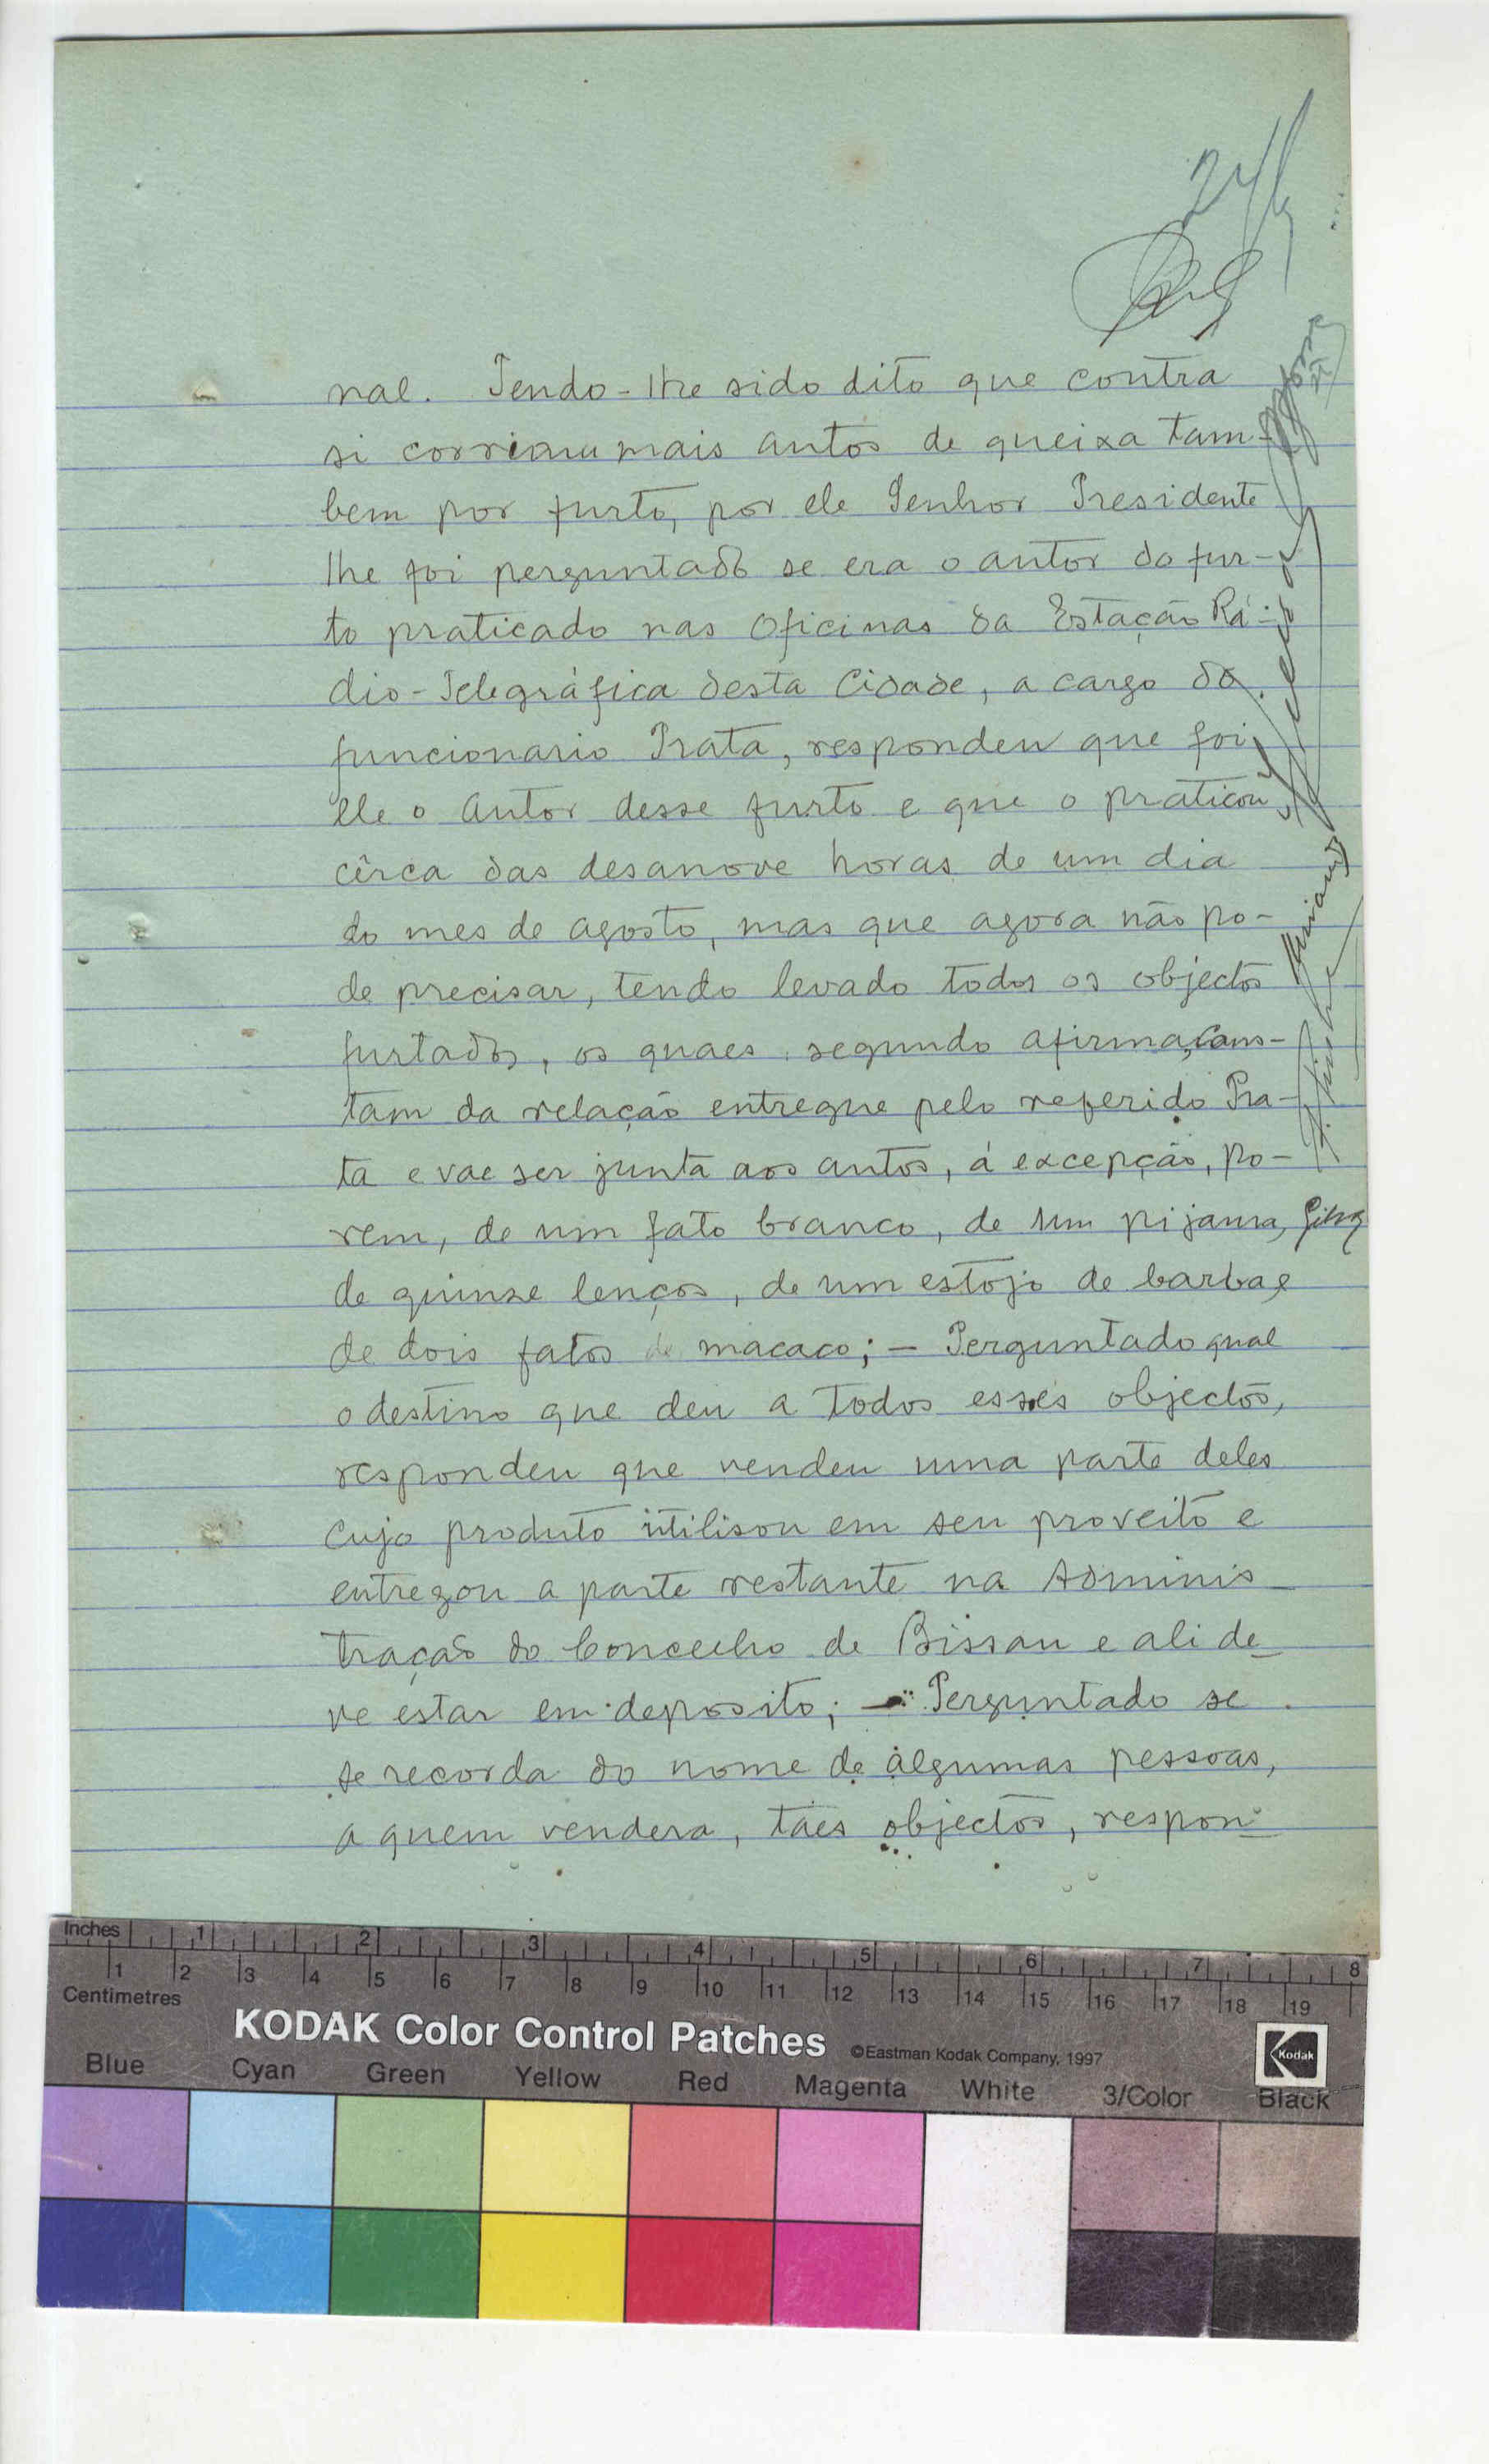 24
nal. Tendo-lhe sido dito que contra
si corriam mais autos de queixa tam-
bem por furto, por ele Senhor Presidente
lhe foi perguntado se era o autor do fur-
to praticado nas Oficinas da Estação Rá-
dio-Telegráfica desta Cidade, a cargo do
funcionario Prata, respondeu que foi
elle o autor desse furto e que o praticou
cêrca das desanove horas de um dia
do mes de agosto, mas que agora não po-
de precisar, tendo levado todos os objectos
furtados, os quaes, segundo afirma, cons-
tam da relação entregue pelo referido Pra-
ta e vae ser junta aos autos, á excepção, po-
rem, de um fato branco, de um pijama,
de quinse lenços, de um estojo de barba e
de dois fatos de macaco; — Perguntado qual
o destino que deu a todos esses objectos,
respondeu que vendeu uma parte deles
cujo produto utilisou em seu proveito e
entregou a parte restante na Adminis
tração do Concelho de Bissau e ali de
ve estar em deposito; — Perguntado se
se recorda do nome de algumas pessoas,
a quem vendera, taes objectos, respon-
Silva
Inches 1 2 3 4 5 6 7 8
1 2 3 4 5 6 7 8 9 10 11 12 13 14 15 16 17 18 19
Centimetres
KODAK Color Control Patches ©Eastman Kodak Company, 1997 Kodak
Blue Cyan Green Yellow Red Magenta White 3/Color Black